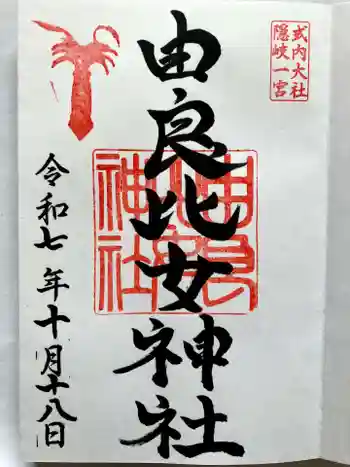 式内大社
隠岐一宮
由良比女神社
令和七年十月十八日